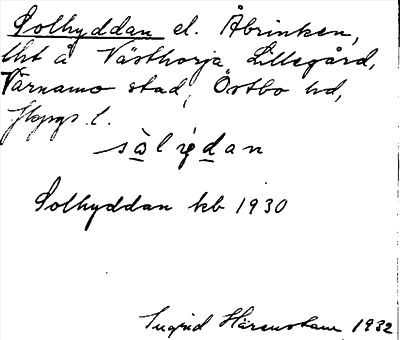 Solhyddan el. Åbrinken,
lht å Västhorja Lillegård,
Värnamo stad, Östbo hd,
Jkpgs l.
sòligdan
Solhyddan kb 1930
Ingrid Härenstam 1932